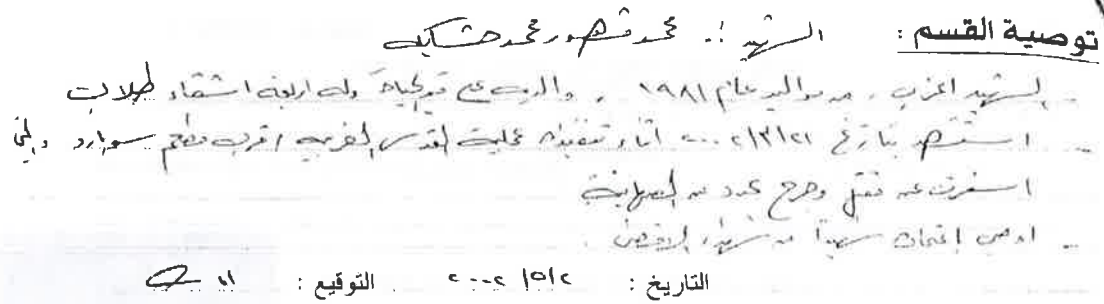 توصية القسم : الشهيد : محمد مشهور محمد حشايكه
- الشهيد اعزب ، من مواليد عام ١٩٨١ ، والديه على قيد الحياة وله اربعة اشقاء طلاب
- استشهد بتاريخ ٢٠٠٢/٣/٢١ اثناء تنفيذه عملية القدس الغربية قرب مطعم سبارو والتي
اسفرت عن مقتل وجرح عدد من الصهاينة
- اوصي اعتماده شهيداً من شهداء الاقصى .
التاريخ : ٢٠٠٢/٥/٢ التوقيع :